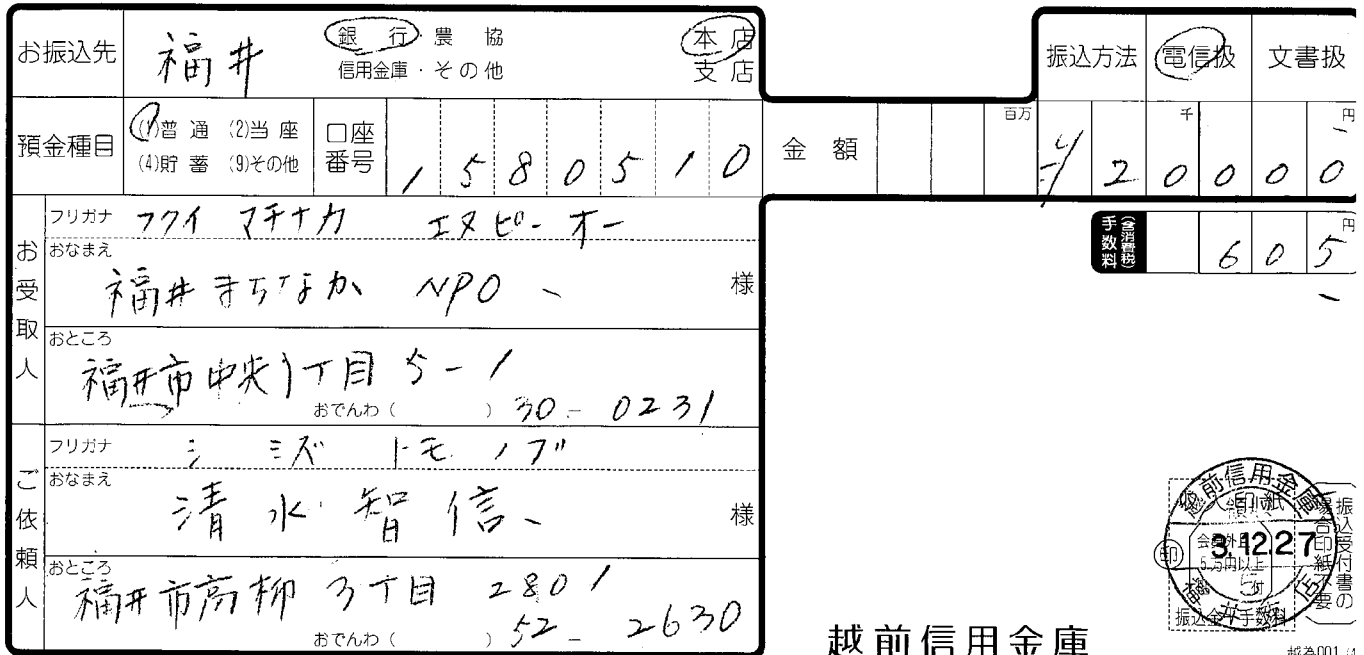 お振込先 福井 銀行・農協 本店
信用金庫・その他 支店
振込方法 電信扱 文書扱
預金種目 (1)普通 (2)当座 口座番号 1580510 金額 百万 千 円 ¥20000
(4)貯蓄 (9)その他
手数料(含消費税) 605円
お受取人
フリガナ フクイ マチナカ エヌピーオー
おなまえ
福井まちなか NPO 様
おところ
福井市中央1丁目5-1
おでんわ( ) 30-0231
ご依頼人
フリガナ シミズ トモノブ
おなまえ
清水智信 様
おところ
福井市高柳3丁目2801
おでんわ( ) 52-2630
越前信用金庫
3.12.27
振込受付書の
場合印紙不要
印
振込金・手数料
越前信用金庫
越為001